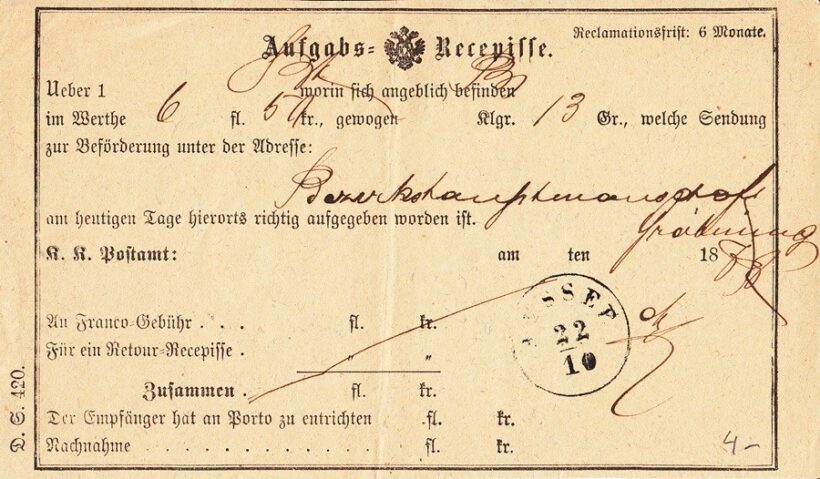 Aufgabs= Recepisse.
Reclamationsfrist: 6 Monate.
Ueber 1 worin sich angeblich befinden
im Werthe 6 fl. 50 kr., gewogen Klgr. 13 Gr., welche Sendung
zur Beförderung unter der Adresse:
Bezirkshauptmannschaft
am heutigen Tage hierorts richtig aufgegeben worden ist.
Gröbming
K. K. Postamt: am ten 18
AUSSEE
22
10
An Franco-Gebühr . . . fl. kr.
Für ein Retour-Recepisse . „ „
Zusammen . fl. kr.
Der Empfänger hat an Porto zu entrichten fl. kr.
Nachnahme . . . . . . . . . . . fl. kr.
D. S. 420.
4-